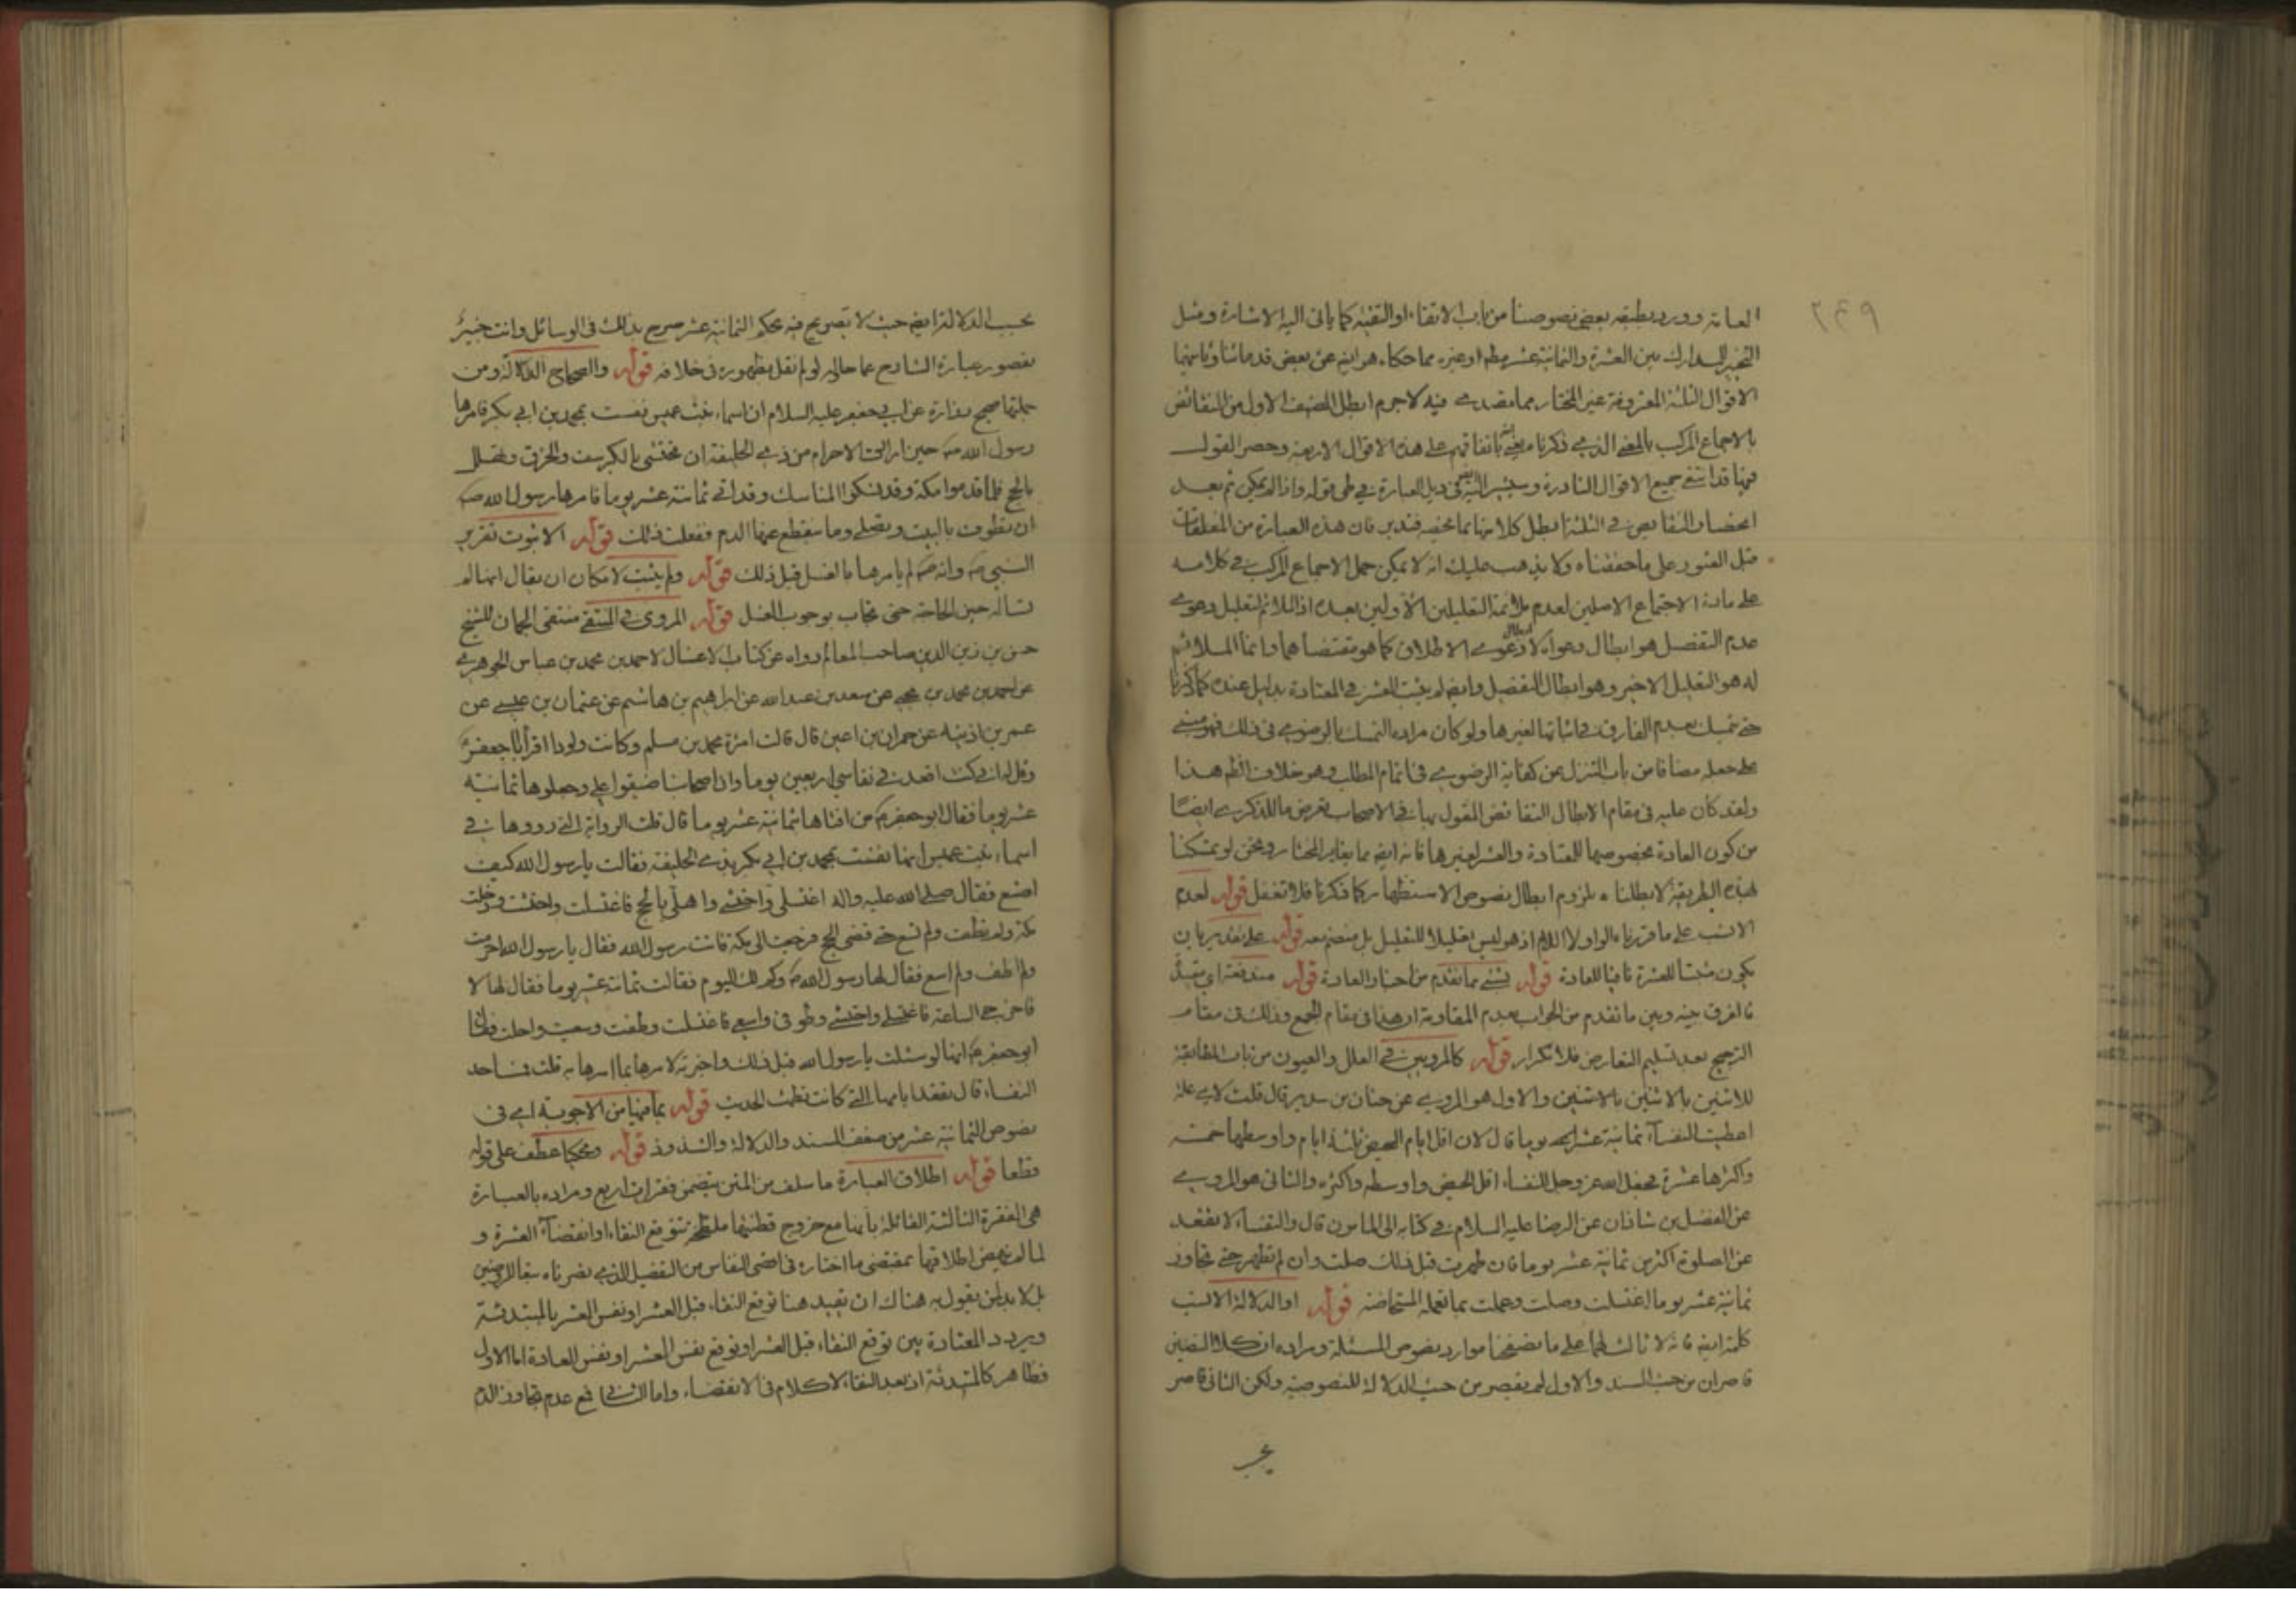 العامة وورد بطبقه بعض نصوصنا من باب الاتقاء او التقية كما ياتى اليه الاشارة ومثل
التخيير للمدارك بين العشرة والثمانية عشر مطم او غيره مما حكاه هو ايضه عن بعض قدمائنا
الاقوال الثلثة المعروفة غير المختار مما
بالاجماع المركب بالمعنى الذى ذكرنا باتفاقهم على هذه الاقوال الاربعة وحصر القول
فيها قد انتفى جميع الاقوال النادرة فى ذيل العبارة فى طى قوله واذا لم يكن ثم بعد
انحصار النقايض فى الثلثة ابطل كلا منها بما يخصه فتدبر فان هذه العبارة من المغلقات
قبل العثور على ما حققناه ولا يذهب عليك انه لا يمكن حمل الاجماع المركب فى كلامه
على مادة الاجتماع الاصلين لعدم ملائمة التعليلين الاولين بعده اذ الملائم لتعليل دعوى
عدم التفصيل هو ابطال دعواه لا دعوى الاطلاق كما هو مقتضاهما وانما الملائم
له هو التعليل الاخير وهو ابطال التفصيل وايضه لم يثبت العشر فى المعتادة بدليل عنده كما ذكرنا
حتى يتمسك بعدم الفارق فى اثباتها لغيرها ولو كان مراده التمسك بالرضوى فى ذلك فهو مبنى
على جعله مضافا من باب التنزل عن كفاية الرضوى فى اتمام المطلب وهو خلاف الظم هذا
ولقد كان عليه فى مقام الابطال النقائض المقول بها فى الاصحاب تعرض ما للذكرى ايضًا
من كون العادة مخصوصها للمعتادة والعشر لغيرها فانه ايضه مما يغاير المختار ونحن لو تمسكنا
بهذه الطريقة لابطلناه بلزوم ابطال نصوص الاستظهار كما ذكرنا فلا تغفل قوله لعدم
الانسب على ما قررناه الواو لا اللام اذ هو ليس تعليلا للتعليل بل منضم معه قوله على تقدير بان
يكون مثبتا للعشرة نافيا للعادة قوله بشئ ما تقدم من اخبار العادة قوله مندفعة اى مقبلً
فالفرق بينه وبين ما تقدم من الجواب بعدم المقاومة ان هذا فى مقام الجمع وذلك فى مقام
الترجيح بعد تسليم التعارض فلا تكرار قوله كالمرويين فى العلل والعيون من باب المطابقة
للاثنين بالاثنين والاول هو المروى عن حنان بن سدير قال قلت لاى علة
اعطيت النفسآء ثمانية عشر يوما قال لان اقل ايام الحيض ثلثة ايام واوسطها خمسة
واكثرها عشرة فجعل الله عز وجل للنفساء اقل الحيض واوسطه واكثره والثانى هو المروى
عن الفضل بن شاذان عن الرضا عليه السلام فى كتابه الى المامون قال والنفسآء لا تقعد
عن الصلوة اكثر من ثمانية عشر يوما فان طهرت قبل ذلك صلت وان لم تطهر حتى تجاوز
ثمانية عشر يوما اغتسلت وصلت وعملت بما تعمله المستحاضة قوله او الدلالة الانسب
كلمة ايضه فانه لا ثالث لهما على ما تصفحنا موارد نصوص المسئلة ومراده ان كلا النصين
قاصران من حيث السند والاول لم يقصر من حيث الدلالة للنصوصية ولكن الثانى قاصر
بحسب الدلالة ايضه حيث لا تصريح فيه بحكم الثمانية عشر صرح بذلك فى الوسائل وانت خبير
بقصور عبارة الشارح عما حاله لو لم نقل بظهوره فى خلافه قوله والصحاح الدلالة ومن
جملتها صحيح زرارة عن ابى جعفر عليه السلام ان اسماء بنت عميس نفست بمحمد بن ابى بكر فامرها
رسول الله ص حين ارادت الاحرام من ذى الحليفة ان تحتشى بالكرسف والخرق وتهلل
بالحج فلما قدموا مكة وقد نسكوا المناسك وقد اتى ثمانية عشر يوما فامرها رسول الله ص
ان تطوف بالبيت وتصلى وما ينقطع عنها الدم ففعلت ذلك قوله الا ثبوت تقرير
النبى ص وانه ص لم يامرها بالغسل قبل ذلك قوله ولم يثبت لامكان ان يقال انها لم
تساله حين الحاجة حتى تجاب بوجوب الغسل قوله المروى فى المنتقى منتقى الجمان للشيخ
حسن بن زين الدين صاحب المعالم رواه عن كتاب الاغسال لاحمد بن محمد بن عياش الجوهرى
عن احمد بن محمد بن يحيى عن سعد بن عبد الله عن ابراهيم بن هاشم عن عثمان بن عيسى عن
عمر بن اذينة عن حمران بن اعين قال قالت امرة محمد بن مسلم وكانت ولودا اقرأ ابا جعفر ع
وقل له انى كنت اقعد فى نفاسى اربعين يوما وان اصحابنا ضيقوا على وجعلوها ثمانية
عشر يوما فقال ابو جعفر ع من افتاها بثمانية عشر يوما قال قلت الرواية التى رووها فى
اسماء بنت عميس انها نفست بمحمد بن ابى بكر بذى الحليفة فقالت يا رسول الله كيف
اصنع فقال صلى الله عليه واله اغتسلى واحتشى واهلى بالحج فاغتسلت واحتشت ودخلت
مكة ولم تطف ولم تسع حتى تقضى الحج فرجعت الى مكة فاتت رسول الله فقال يا رسول الله احرمت
ولم اطف ولم اسع فقال لها رسول الله ص وكم لك اليوم فقالت ثمانية عشر يوما فقال لها لا
فاخرجى الساعة فاغتسلى واحتشى وطوفى واسعى فاغتسلت وطفت وسعت واحلت فقال
ابو جعفر ع انها لو سئلت يا رسول الله قبل ذلك واخبرته لامرها بما امرها به قلت فما حد
النفساء قال تقعد ايامها التى كانت تطمث الحديث قوله بما فيها من الاجوبة اى فى
نصوص الثمانية عشر من ضعف السند والدلالة والشذوذ قوله ومحكيا عطف على قوله
قطعا قوله اطلاق العبارة ما سلف من المتن يتضمن فقرات اربع ومراده بالعبارة
هى الفقرة الثالثة القائلة بانها مع خروج قطنتها ملطخة تتوقع النقاء او انقضآء العشرة و
لما لم يرض اطلاقها بمقتضى ما اختاره فى اقصى النفاس من التفصيل الذى نصرناه
بل لا بد لمن يقول به هناك ان يقيد هنا توقع النقاء قبل العشر او نفس العشر بالمبتدئة
ويردد المعتادة بين توقع النقاء قبل العشر او توقع نفس العشر او نفس العادة اما الاول
فظاهر كالمبتدئة اذ بعد النقاء لا كلام فى الانقضاء واما الثانى فمع عدم تجاوز الدم